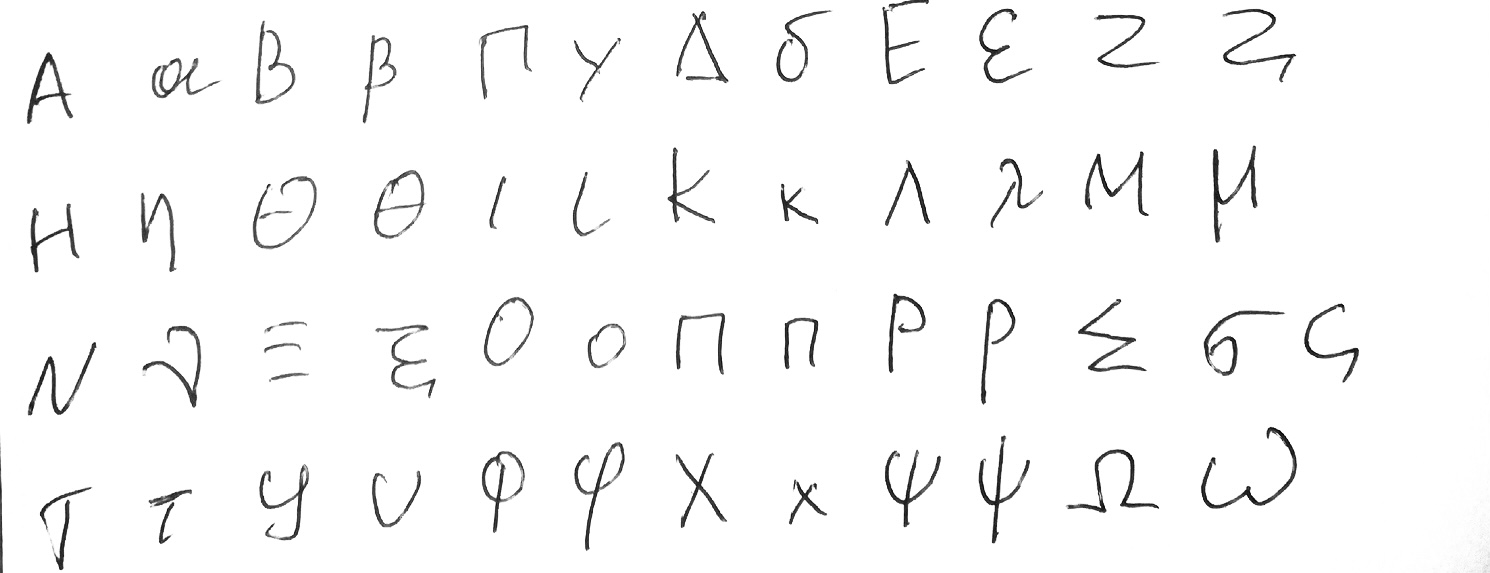 Α α Β β Π γ Δ δ Ε ε Ζ ζ
Η η Θ θ Ι ι Κ κ Λ λ Μ μ
Ν ν Ξ ξ Ο ο Π π Ρ ρ Σ σ ς
Τ τ Υ υ Φ φ Χ χ Ψ ψ Ω ω